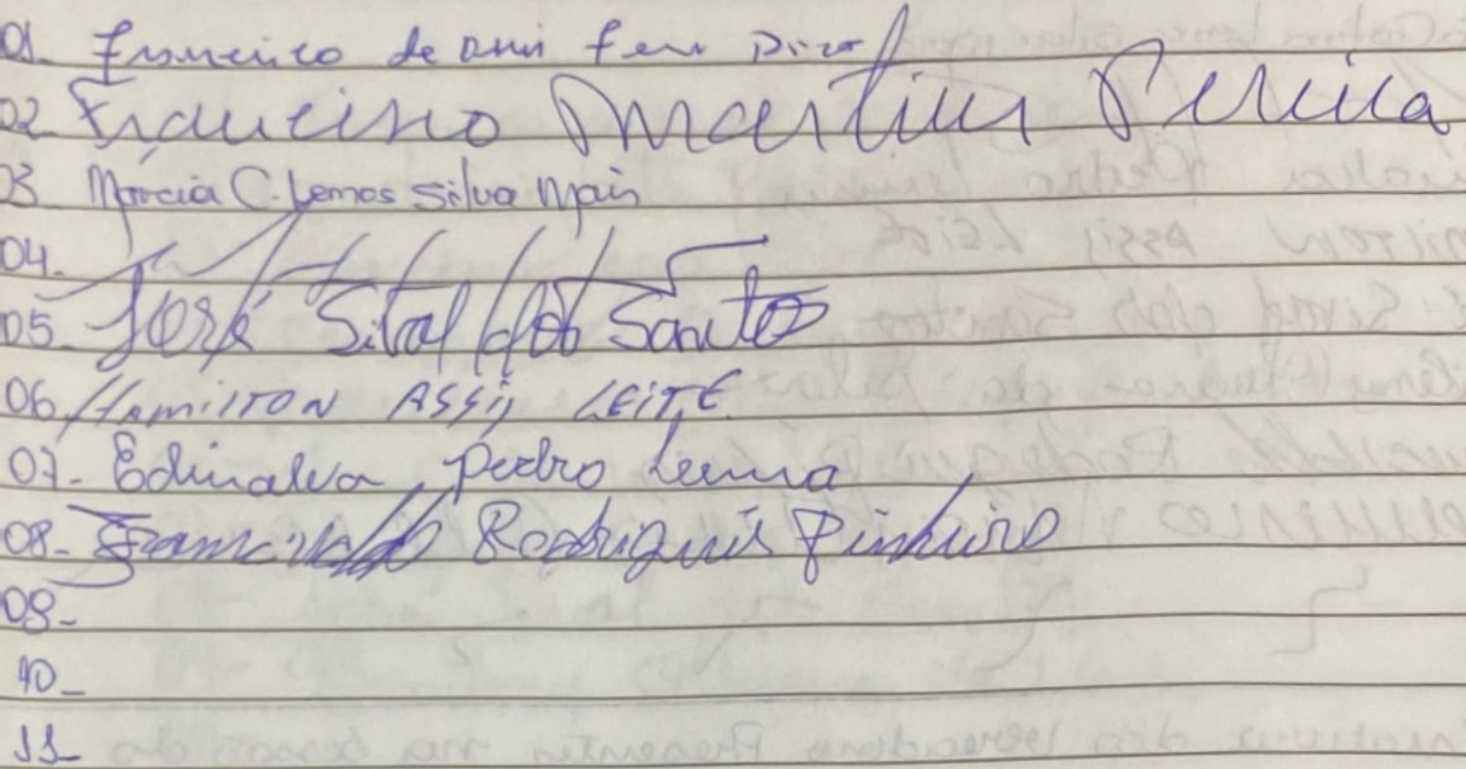 01- Francisco de Assis
02- Francisco Martins Pereira
03- Márcia C. Lemos Silva Mais
04-
05- José Sival dos Santos
06- HAMILTON ASSIS LEITE
07- Edinalva Pedro Lema
08- Francinaldo Rodrigues Pinheiro
08-
10-
11-